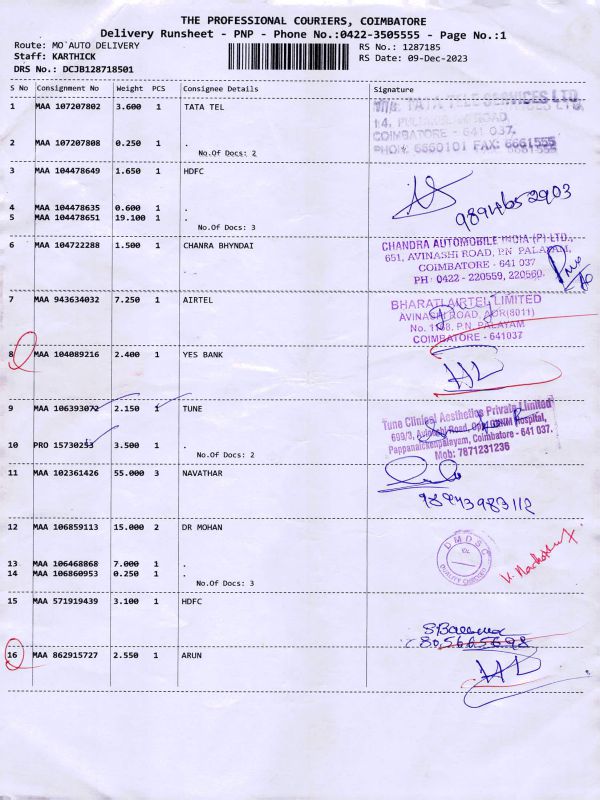 THE PROFESSIONAL COURIERS, COIMBATORE
Delivery Runsheet - PNP - Phone No.:0422-3505555 - Page No.:1
Route: MO`AUTO DELIVERY RS No.: 1287185
Staff: KARTHICK RS Date: 09-Dec-2023
DRS No.: DCJB128718501
S No Consignment No Weight PCS Consignee Details Signature
1 MAA 107207802 3.600 1 TATA TEL
TATA TELE SERVICES LTD
COIMBATORE - 641 037.
2 MAA 107207808 0.250 1 .
PHONE 6660101 FAX: 6661555
No.Of Docs: 2
3 MAA 104478649 1.650 1 HDFC
4 MAA 104478635 0.600 1 .
5 MAA 104478651 19.100 1 .
9894652903
No.Of Docs: 3
6 MAA 104722288 1.500 1 CHANRA BHYNDAI
CHANDRA AUTOMOBILE INDIA (P) LTD.,
651, AVINASHI ROAD, P.N. PALAYAM,
COIMBATORE - 641 037
PH : 0422 - 220559, 220560.
7 MAA 943634032 7.250 1 AIRTEL
BHARATI AIRTEL LIMITED
AVINASHI ROAD, AOR(8011)
No. 1168, P.N. PALAYAM
COIMBATORE - 641037
8 MAA 104089216 2.400 1 YES BANK
9 MAA 106393072 2.150 1 TUNE
Tune Clinical Aesthetics Private Limited
699/3, Avinashi Road, Opp. GKNM Hospital,
Pappanaickenpalayam, Coimbatore - 641 037.
Mob: 7871231236
10 PRO 15730253 3.500 1 .
No.Of Docs: 2
11 MAA 102361426 55.000 3 NAVATHAR
98943983112
12 MAA 106859113 15.000 2 DR MOHAN
DMDSC
QUALITY CHECKED
13 MAA 106468868 7.000 1 .
14 MAA 106860953 0.250 1 .
No.Of Docs: 3
15 MAA 571919439 3.100 1 HDFC
8056665698
16 MAA 862915727 2.550 1 ARUN